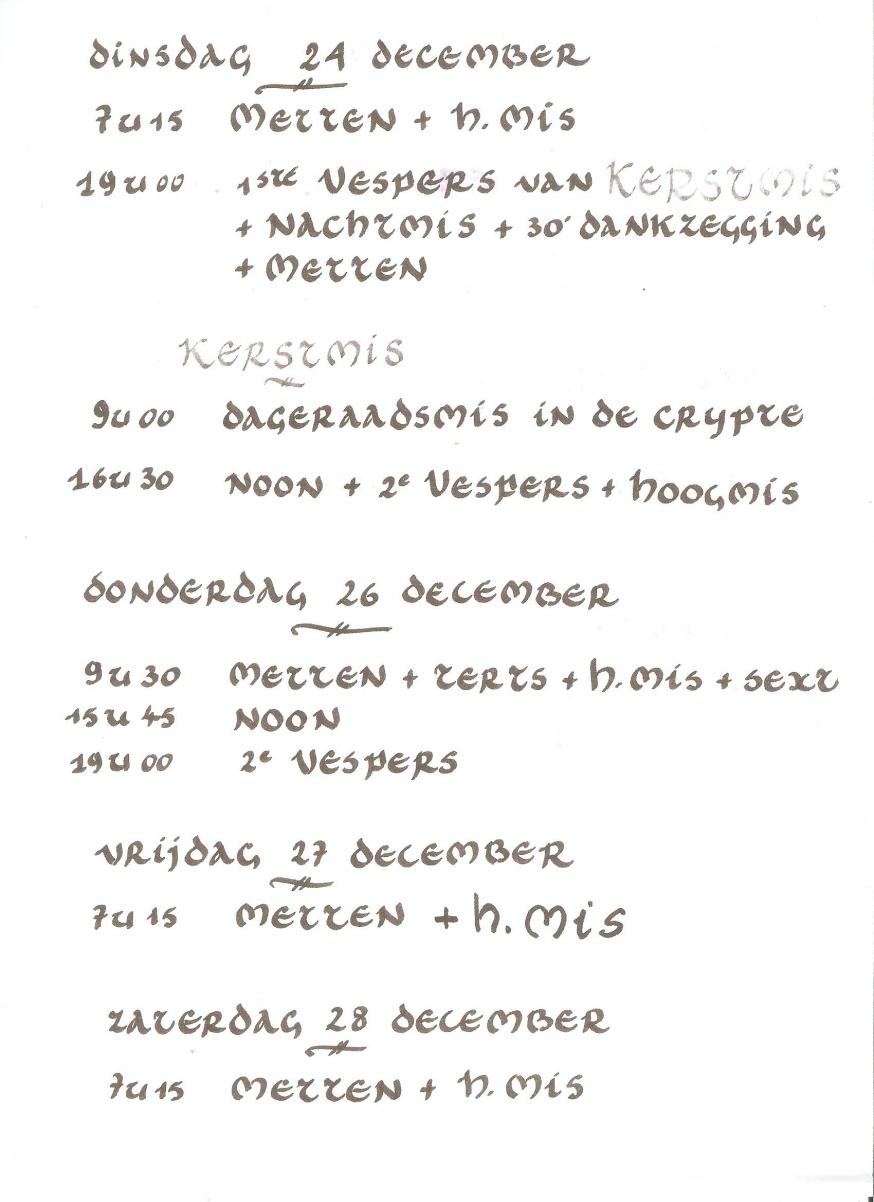 Dinsdag 24 December
7u15 Metten + h. Mis
19u00 1ste Vespers van Kerstmis
+ Nachtmis + 30' dankzegging
+ Metten
Kerstmis
9u00 dageraadsmis in de crypte
16u30 Noon + 2e Vespers + hoogmis
Donderdag 26 December
9u30 Metten + terts + h. Mis + sext
15u45 Noon
19u00 2e Vespers
Vrijdag 27 December
7u15 Metten + h. Mis
Zaterdag 28 December
7u15 Metten + h. Mis